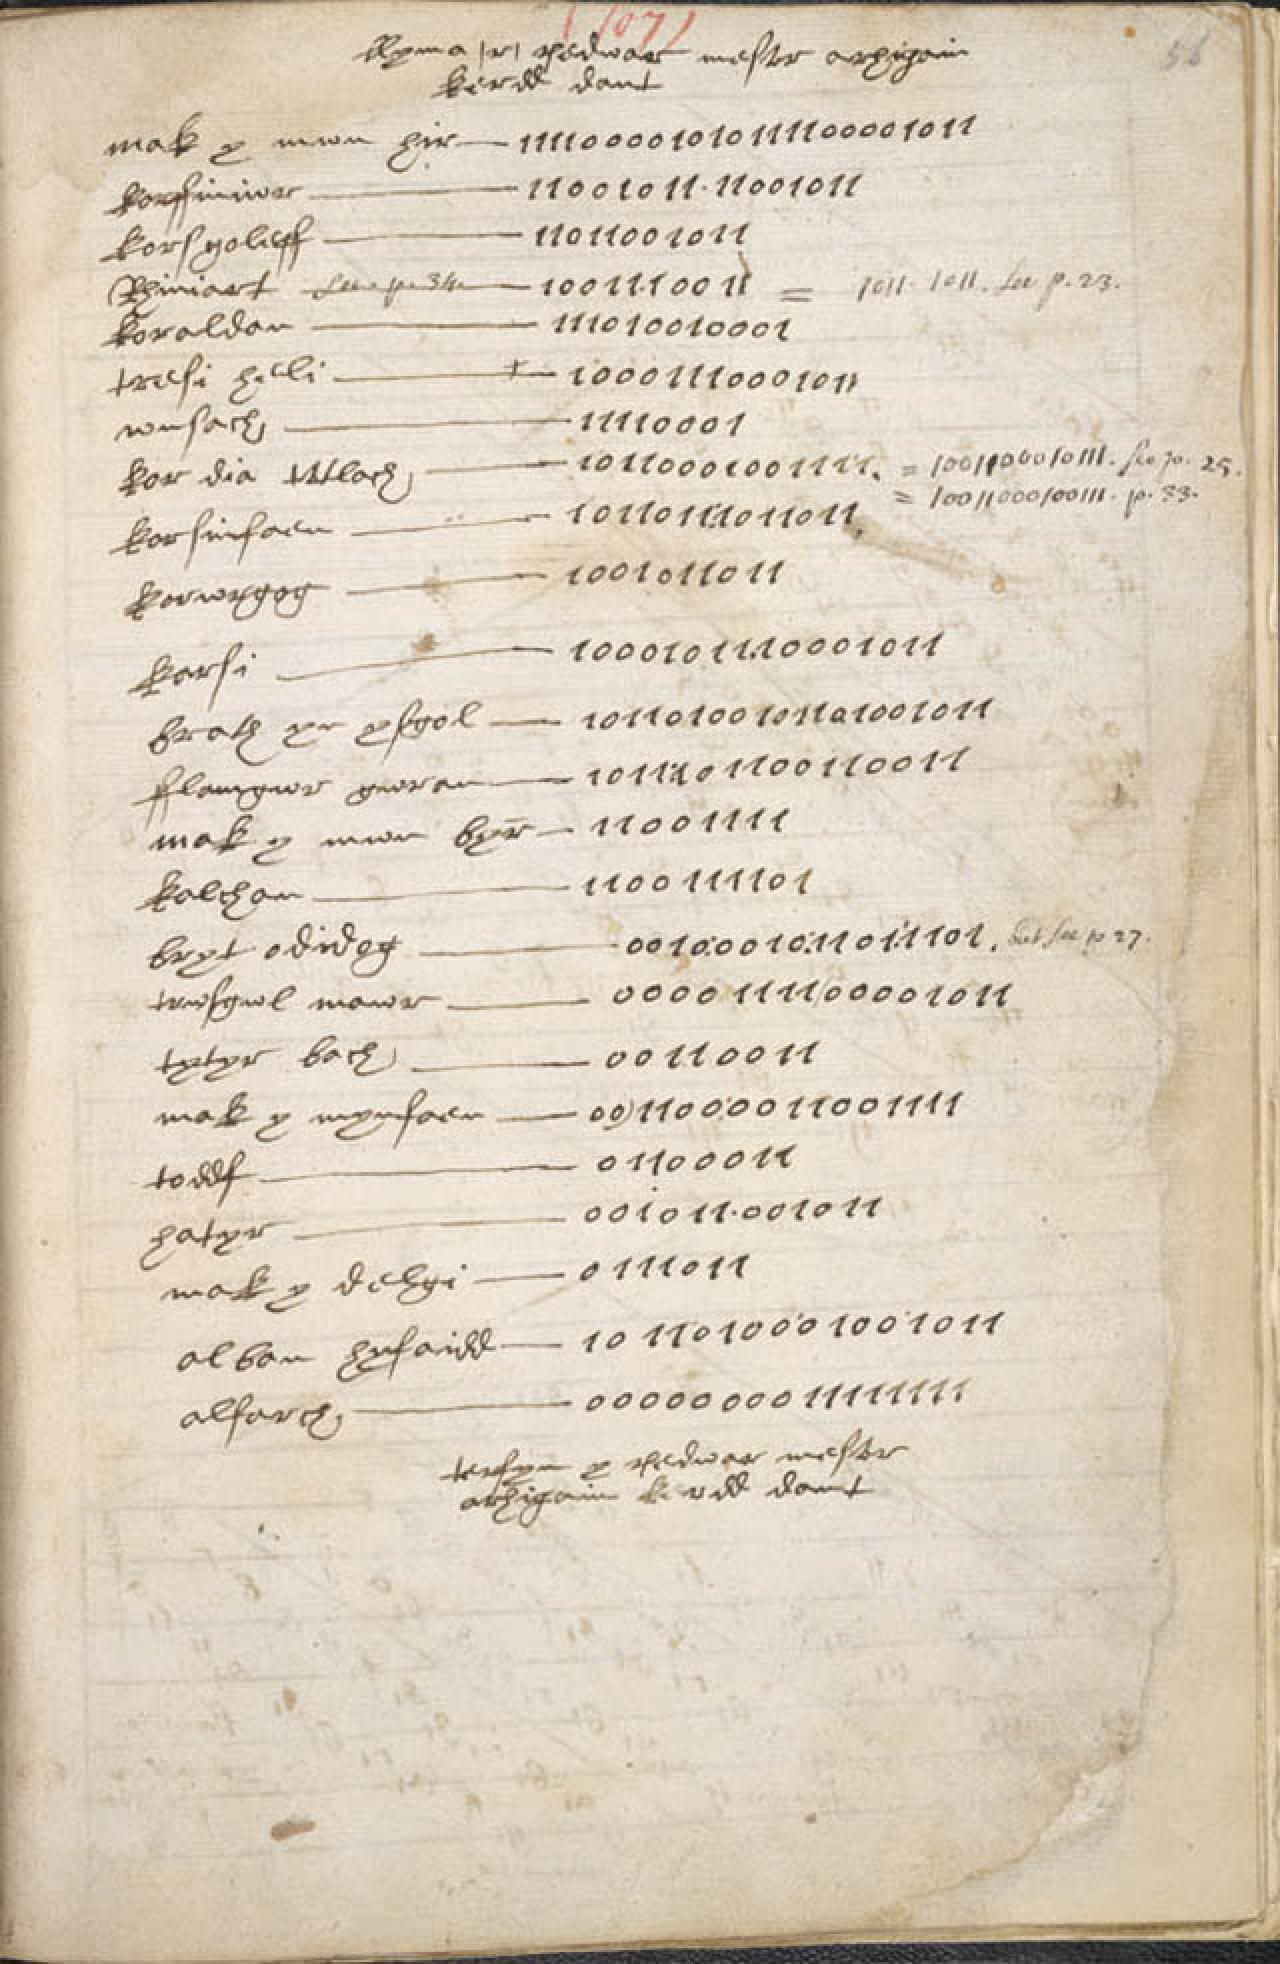 (107)
56
llyma /r/ pedwar mesvr arhigain
kerdd dant
mak y mwn hir — 111100001010111100001011
korffiniwr — 11001011.11001011
korsgoleff — 11011001011
Rhiniart see p. 34 — 10011110011 = 1011. 1011. See p. 23.
koraldan — 111010010001
tresi heli — + 10001110001011
wnsach — 11110001
kor dia tutlach — 10110001001111. = 1001100010111. See p. 25.
= 10011000100111. p. 33.
korsinfaen — 10110111011011
korwrgog — 1001011011
karsi — 1000101110001011
brath yr ysgol — 10110100101101001011
fflamgwr gwran — 1011101100110011
mak y mwn byr — 11001111
kalchan — 1100111101
bryt odidog — 0010001011011101. but see p 27.
trwsgwl mawr — 0000111100001011
tytyr bach — 00110011
mak y mynfaen — 0011000011001111
toddf — 01100011
hatyr — 001011.001011
mak y delgi — 0111011
alban hyfaidd — 1011010001001011
alfarch — 000000001111111
terfyn y pedwar mesvr
arhigain kerdd dant